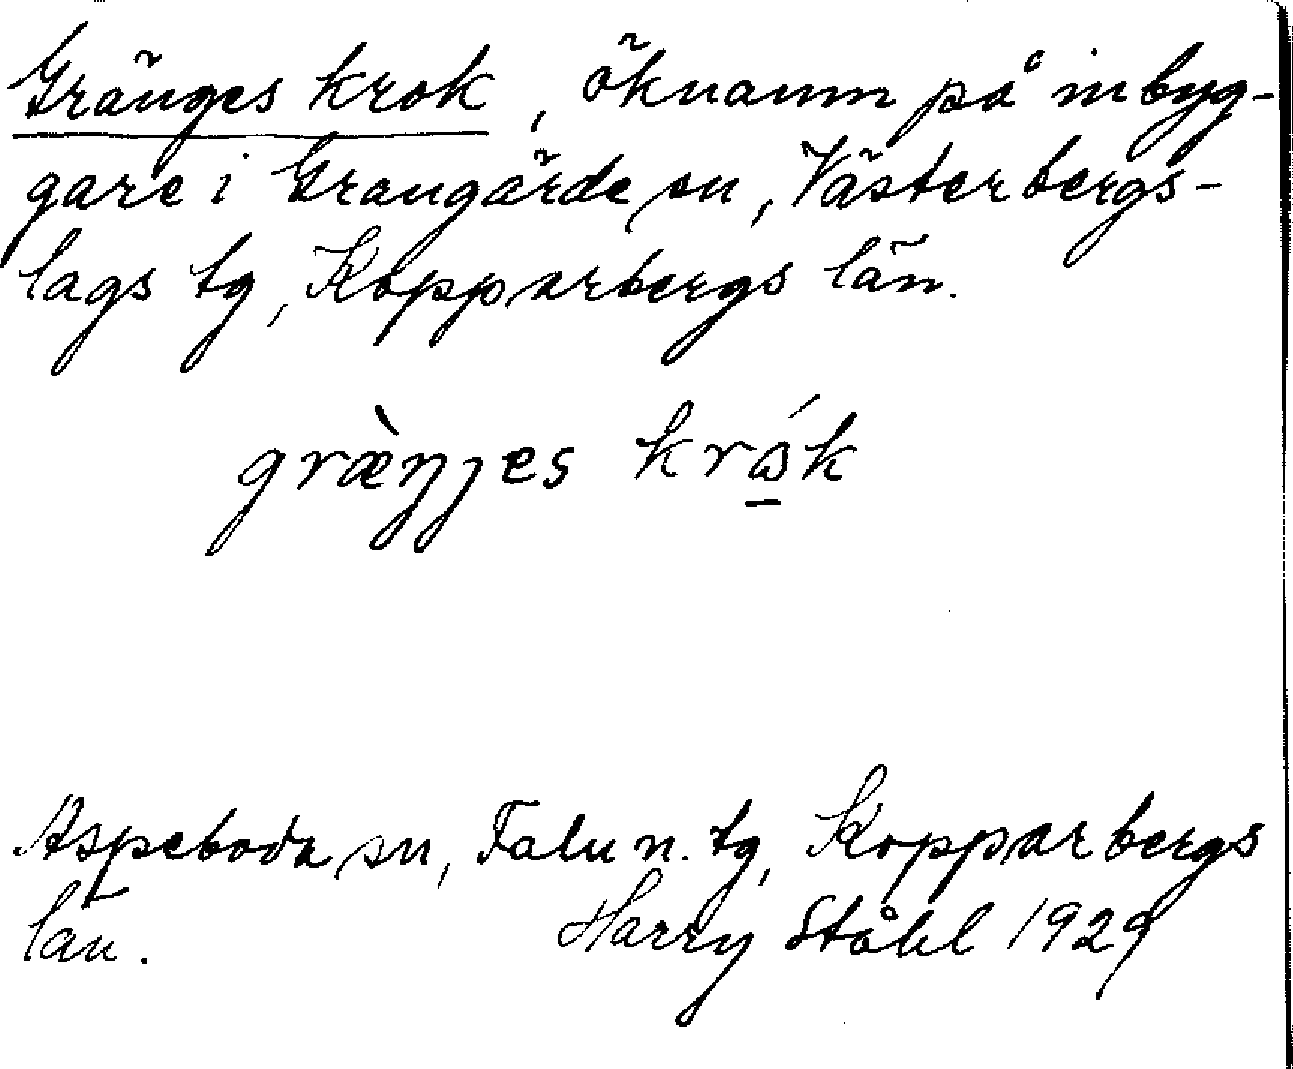 Gränges krok, öknamn på inbyg-
gare i Grangärde sn, Västerbergs-
lags tg, Kopparbergs län.
græ̀ŋȷes
Aspeboda sn, Falu n. tg, Kopparbergs
län. Harry Ståhl 1929